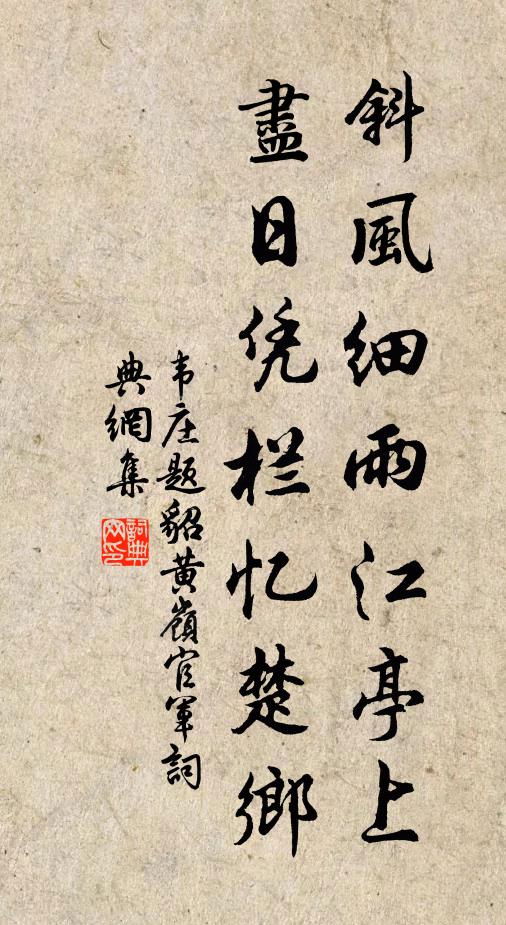 斜風細雨江亭上
盡日凭栏忆楚鄉
韦庄题貂黄嶺官軍詞
典網集
詞典
网印